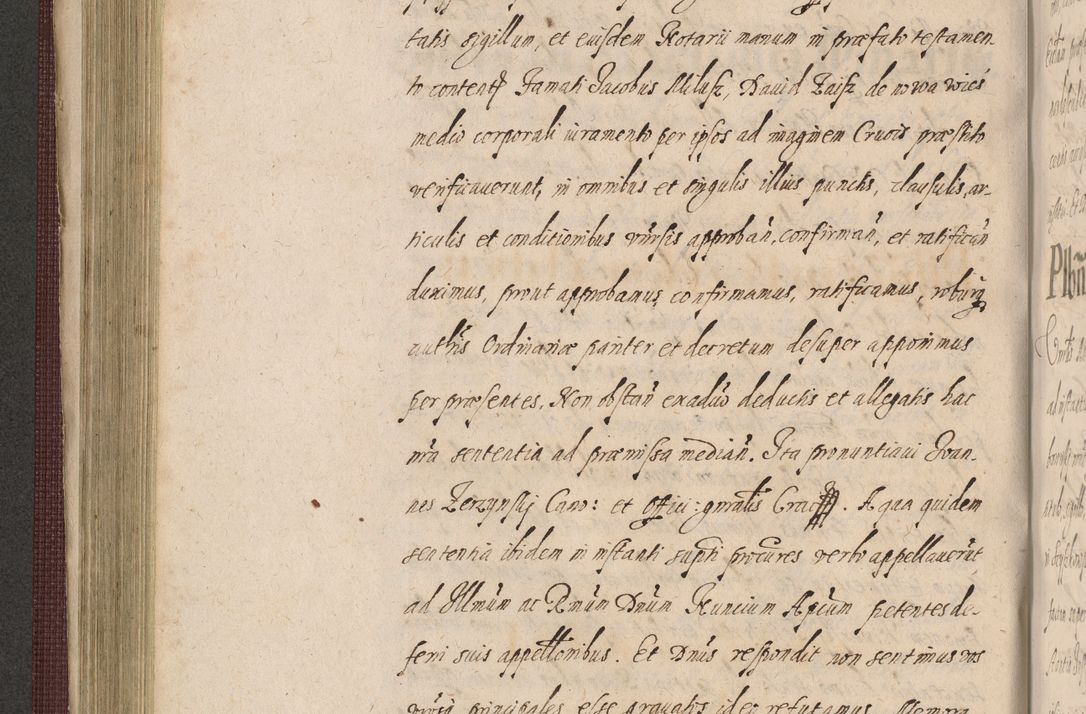 tatis sigillum, et eiusdem Notarii manum in præfato testamen-
to content Famati Jacobus Milusz, Dauid Zaisz de nowa wies
medio corporali iuramento per ipsos ad imaginem Crucis præstito
verificauerunt, in omnibus et singulis illius punctis, clausulis, ar-
ticulis et conditionibus approban, confirman, et ratifican
duximus, prout approbamus, confirmamus, ratificamus,
Ordinariæ pariter et decretum desuper apponimus
per præsentes. Non obstan deductis et allegatis hac
nra sententia ad præmissa median. Ita pronuntiaui Joan-
nes Zerzynskij Cano: et Offici: gnralis Crac. A qua quidem
sententia ibidem in instanti supti procures verbo appellauerut
ad Illmum ac Rmum Dnum Nuncium Apcum petentes de-
ferri suis appellonibus. Et Dnus respondit non sentimus vos
principales esse grauatos ideo refutamus